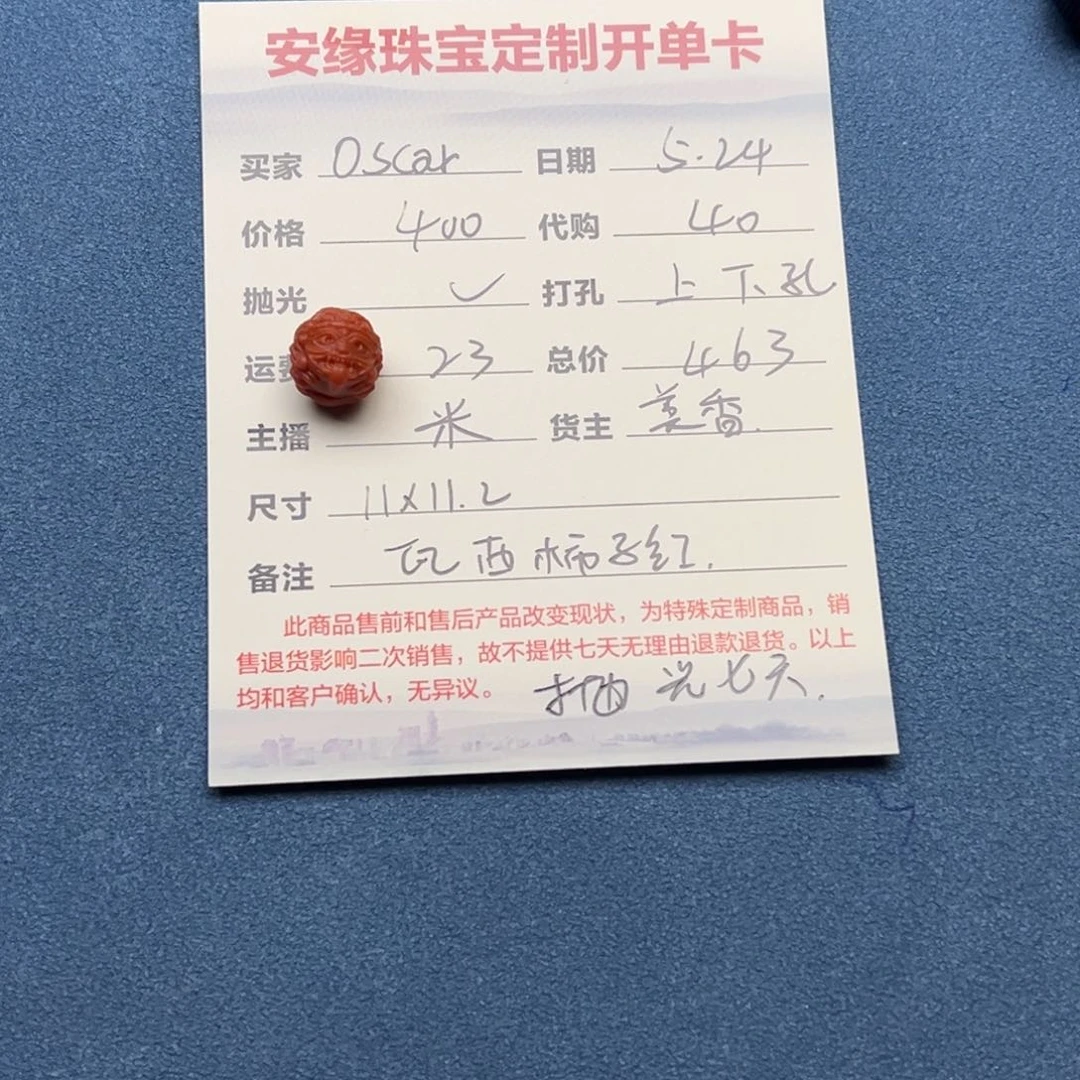 安缘珠宝定制开单卡
买家 Oscar 日期 5.24
价格 400 代购 40
抛光 ✓ 打孔 上下孔
运费 23 总价 463
主播 米 货主 美香.
尺寸 11x11.2
备注 瓦西柿子红.
此商品售前和售后产品改变现状，为特殊定制商品，销
售退货影响二次销售，故不提供七天无理由退款退货。以上
均和客户确认，无异议。 抛光七天.